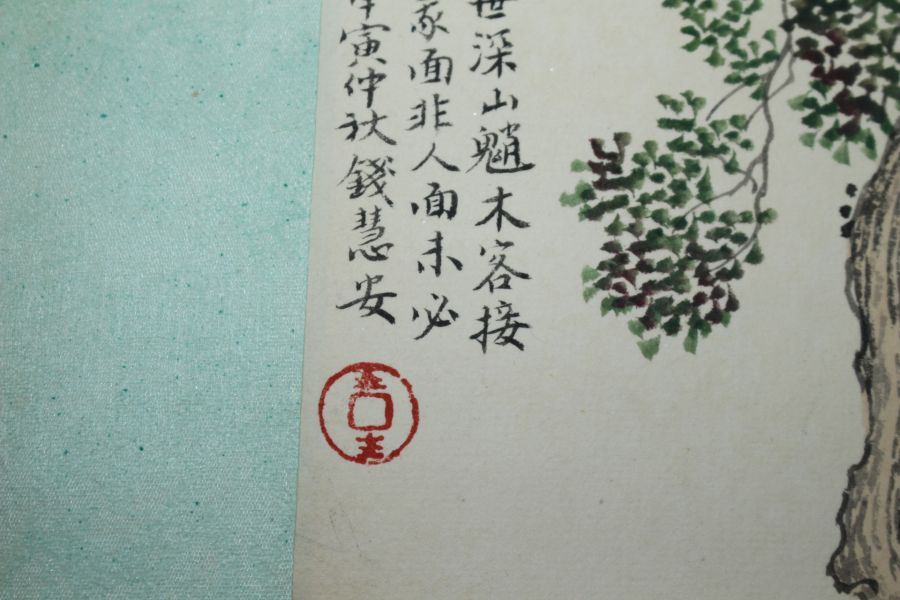 世深山魈木客接
家面非人面未必
寅仲秋錢慧安